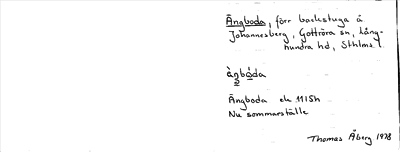 Ängboda, förr backstuga å
Johannesberg, Gottröra sn, Lång-
hundra hd, Sthlms l.
Ängboda ek 11I5h
Nu sommarställe
Thomas Åberg 1978